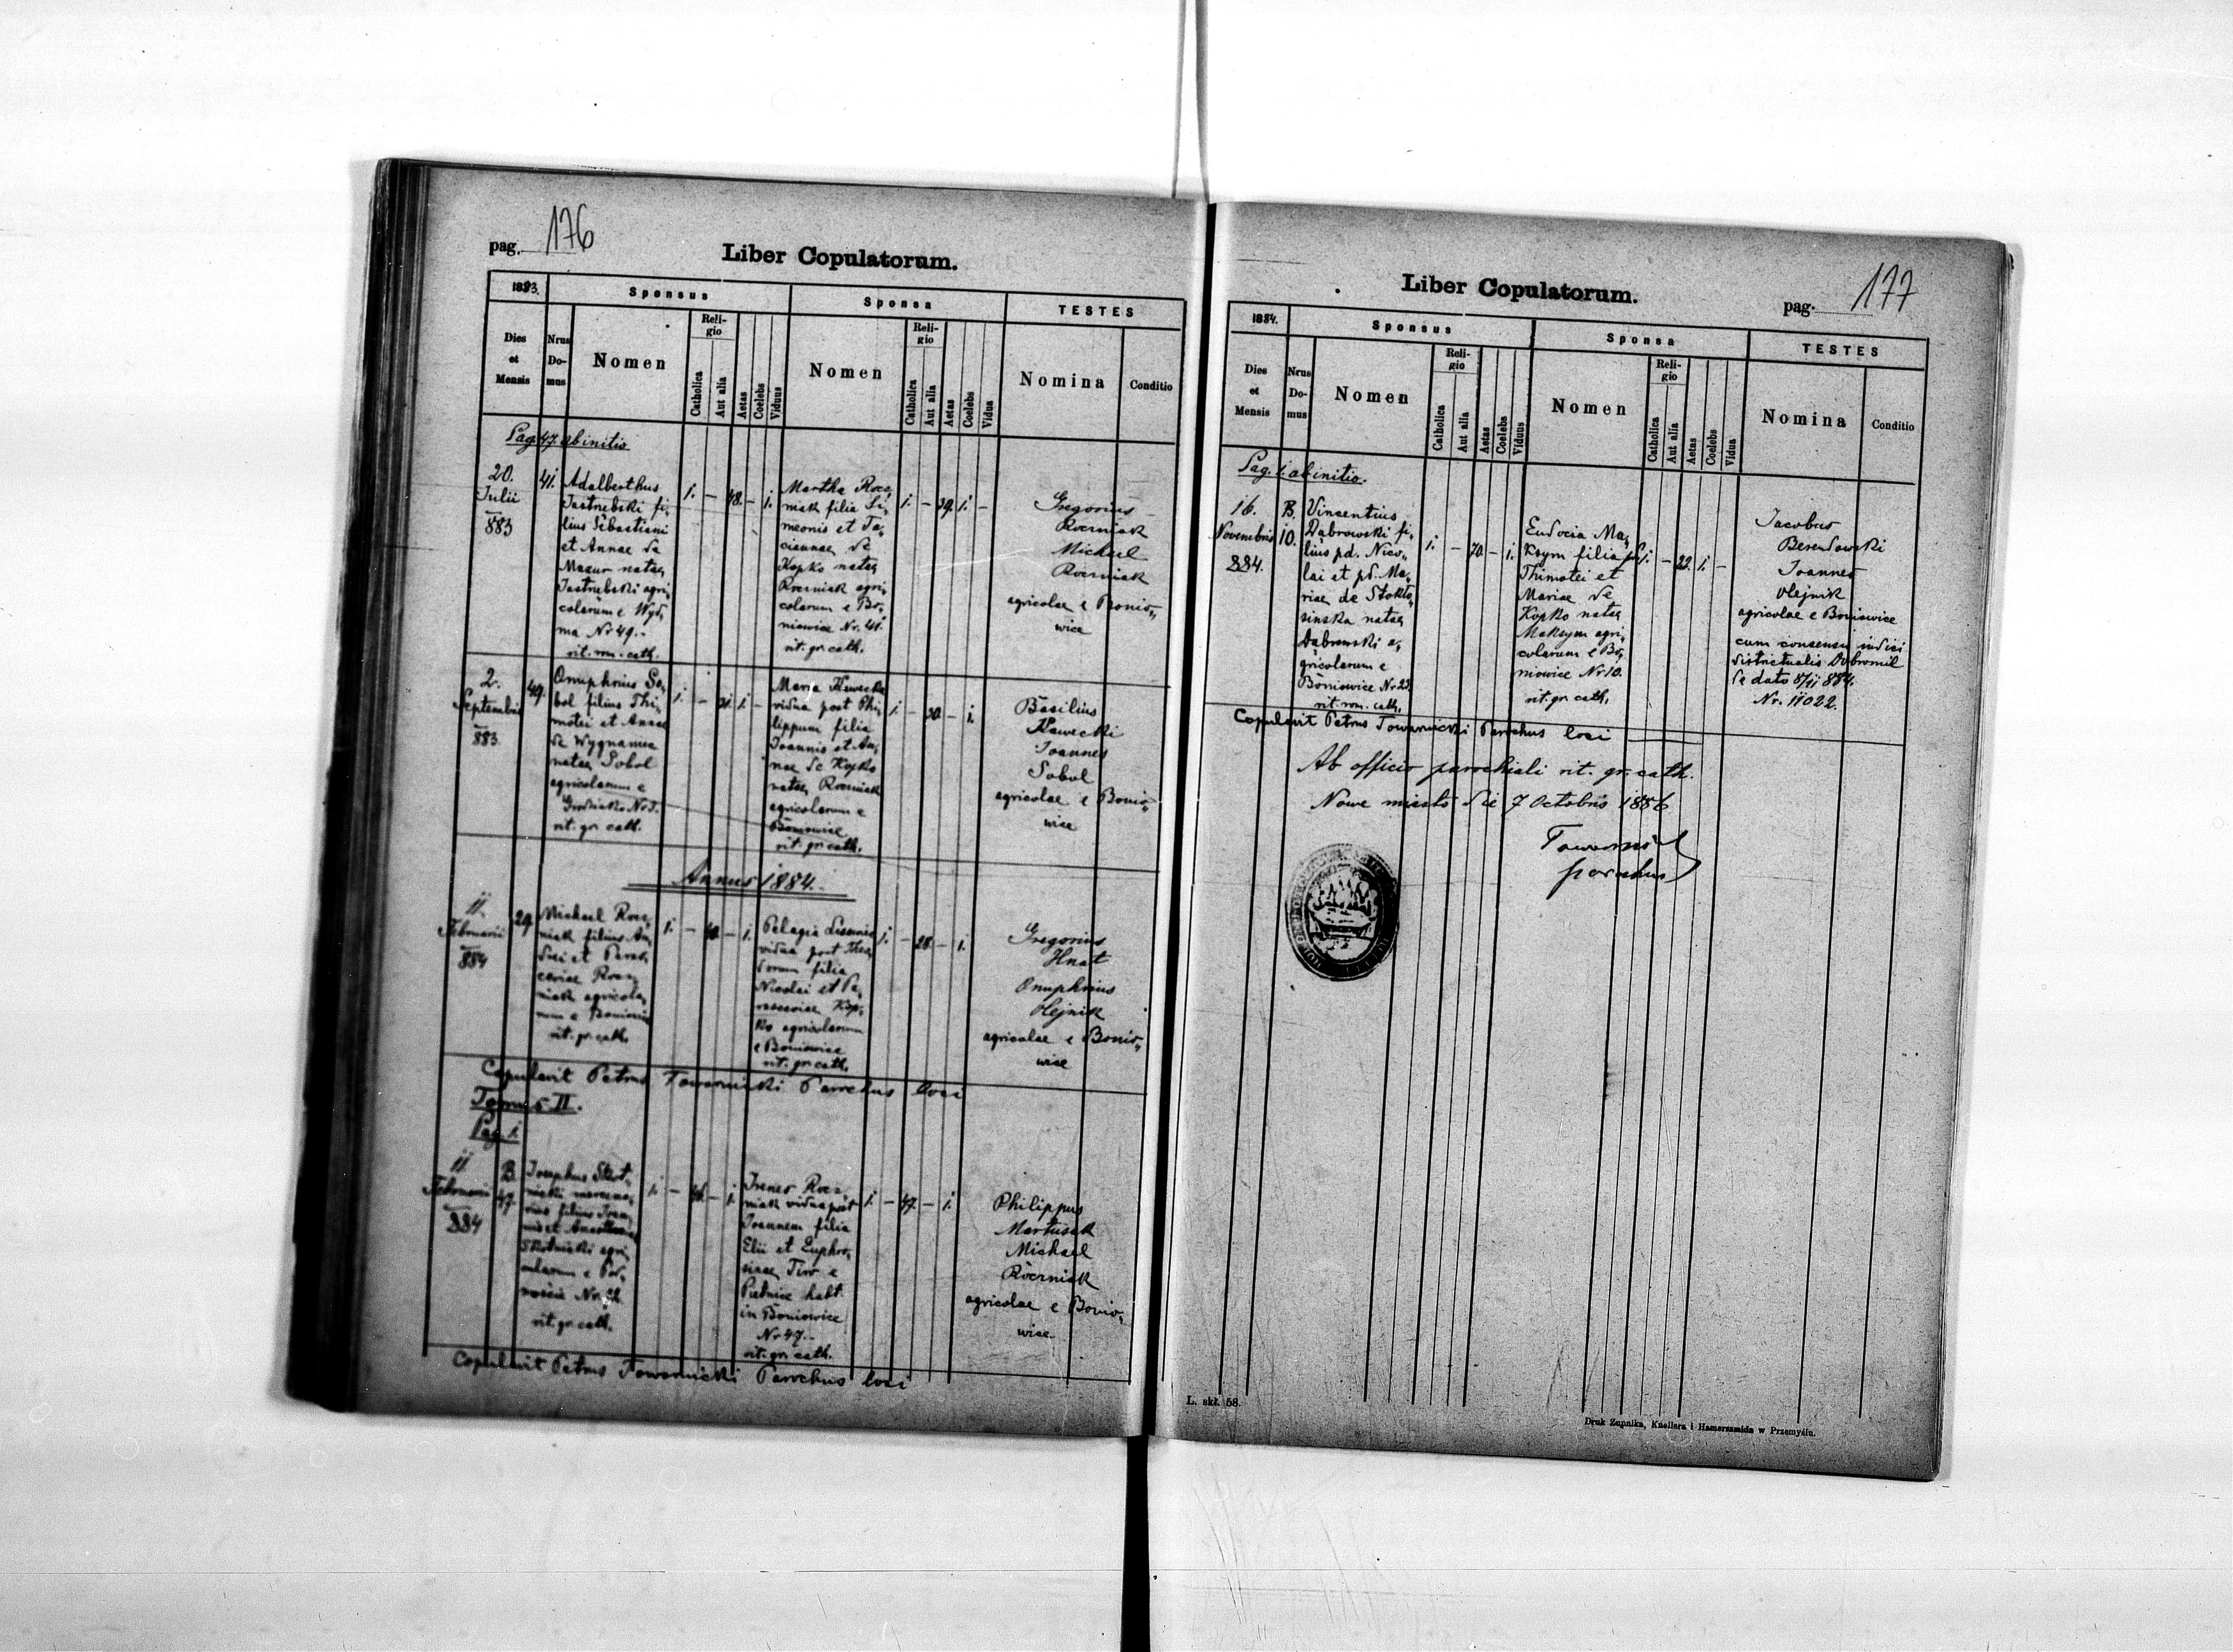 pag. 176
Liber Copulatorum.
1883.
Sponsus
Sponsa
TESTES
Dies et Mensis
Nrus Domus
Nomen
Religio
Catholica
Aut alia
Aetas
Coelebs
Viduus
Nomen
Religio
Catholica
Aut alia
Aetas
Coelebs
Vidua
Nomina
Conditio
Pag. 47. ab initio
20.
Julii
883
41.
Adalberthus
Jastrebski fi„
lius Sebastiani
et Annae de
Mazur natae
Jastrebski agri„
colarum e Wyd„
ma Nr 49.-
rit. rm. cath.
1. — 48. — 1.
Martha Rocz„
niak filia Si„
meonis et Ta„
cianae de
Kopko natae
Roczniak agri„
colarum e Bo„
niowice Nr. 41.
rit. gr. cath.
1. — 39. 1. —
Gregorius
Roczniak
Michael
Roczniak
agricolae e Bonio„
wice
2.
Septembris
883.
49.
Onuphrius So„
bol filius Thi„
motei et Annae
de Wygnaniec
natae Sobol
agricolarum e
rit. gr. cath.
1. — 1. —
Maria
vidua post Phi„
lippum filia
Joannis et An„
nae de Kopko
natae Roczniak
agricolarum e
Boniowice
rit. gr. cath.
1. — 30. — 1.
Basilius
Joannes
Sobol
agricolae e Bonio„
wice
Annus 1884.
11.
Februarii
884
29.
Michael Rocz„
niak filius An„
drei et Paras„
ceviae Rocz„
niak agricola„
rum e Boniowice
rit. gr. cath.
1. — — 1.
Pelagia
vidua post Theo„
dorum filia
Nicolai et Pa„
rasceviae Kop„
ko agricolarum
e Boniowice
rit. gr. cath.
1. — 28. — 1.
Gregorius
Hnat
Onuphrius
Olejnik
agricolae e Bonio„
wice
Copulavit Petrus Towarnicki Parochus loci
Tomus II.
Pag. 1.
11
Februarii
884
B.
47.
Josephus
filius Joan„
nis et
agri„
colarum e
Nr. 22.
rit. gr. cath.
1. — — 1.
Irenes Rocz„
niak vidua post
Joannem filia
Elii et Euphro„
sinae Tiro e
Pietnice habt.
in Boniowice
Nr 47.-
rit. gr. cath.
1. — 47. — 1.
Philippus
Martusiak
Michael
Roczniak
agricolae e Bonio„
wice
Copulavit Petrus Towarnicki Parochus loci
Liber Copulatorum.
pag. 177
1884.
Sponsus
Sponsa
TESTES
Dies et Mensis
Nrus Domus
Nomen
Religio
Catholica
Aut alia
Aetas
Coelebs
Viduus
Nomen
Religio
Catholica
Aut alia
Aetas
Coelebs
Vidua
Nomina
Conditio
Pag. 1. ab initio.
16.
Novembris
884.
B.
10.
Vincentius
Dąbrowski fi„
lius pd. Nico„
lai et pd. Ma„
riae de Stokło„
sinska natae
Dąbrowski a„
gricolarum e
Boniowice Nr 23.
rit. rm. cath.
1. — 70. — 1.
Eudocia Ma„
ksym filia pd.
Thimotei et
Mariae de
Kopko natae
Maksym agri„
colarum e Bo„
niowice Nr 10.
rit. gr. cath.
1. — 22. 1. —
Jacobus
Berendowski
Joannes
Olejnik
agricolae e Boniowice
cum consensu iudici
districtualis Dobromil
de dato 8/11 884.
Nr. 11022.
Copulavit Petrus Towarnicki Parochus loci
Ab officio parochiali rit. gr. cath.
Nowe miasto die 7 Octobris 1886
Towarnicki
parochus
L. skł. 58.
Druk Żupnika, Knollera i Hamerszmida w Przemyślu.